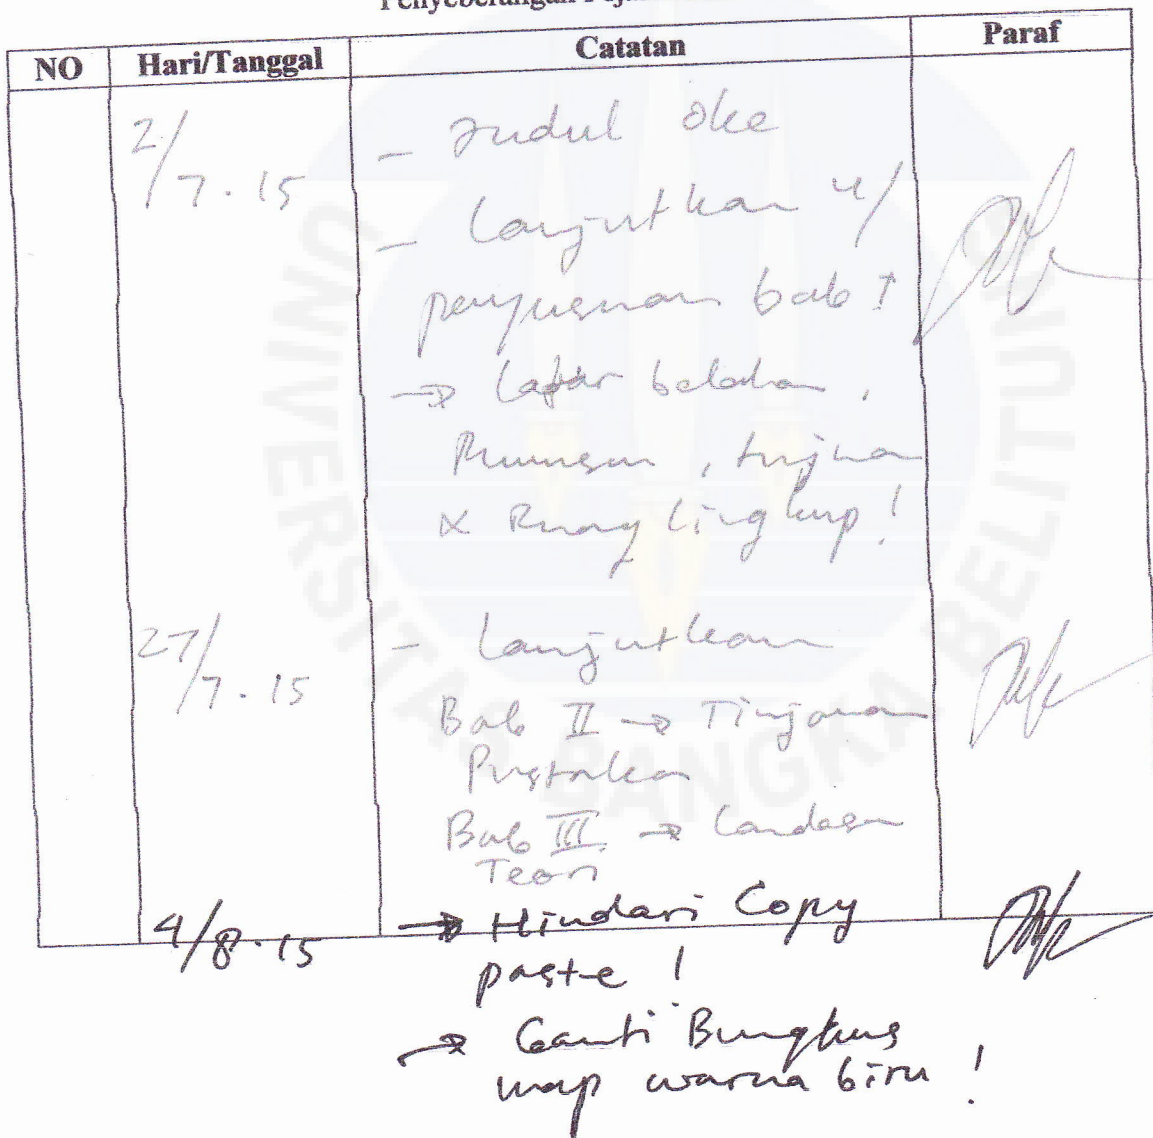 Penyeberangan
NO Hari/Tanggal Catatan Paraf
2/7.15 - Judul oke
- Lanjutkan u/
penyusunan bab I
→ Latar belakan,
Rumusan, tujuan
& Ruang lingkup!
27/7.15 - Lanjutkan
Bab II → Tinjauan
Pustaka
Bab III → Landasan
Teori
4/8.15 → Hindari Copy
paste!
→ Ganti Bungkus
map warna biru!
UNIVERSITAS BANGKA BELITUNG